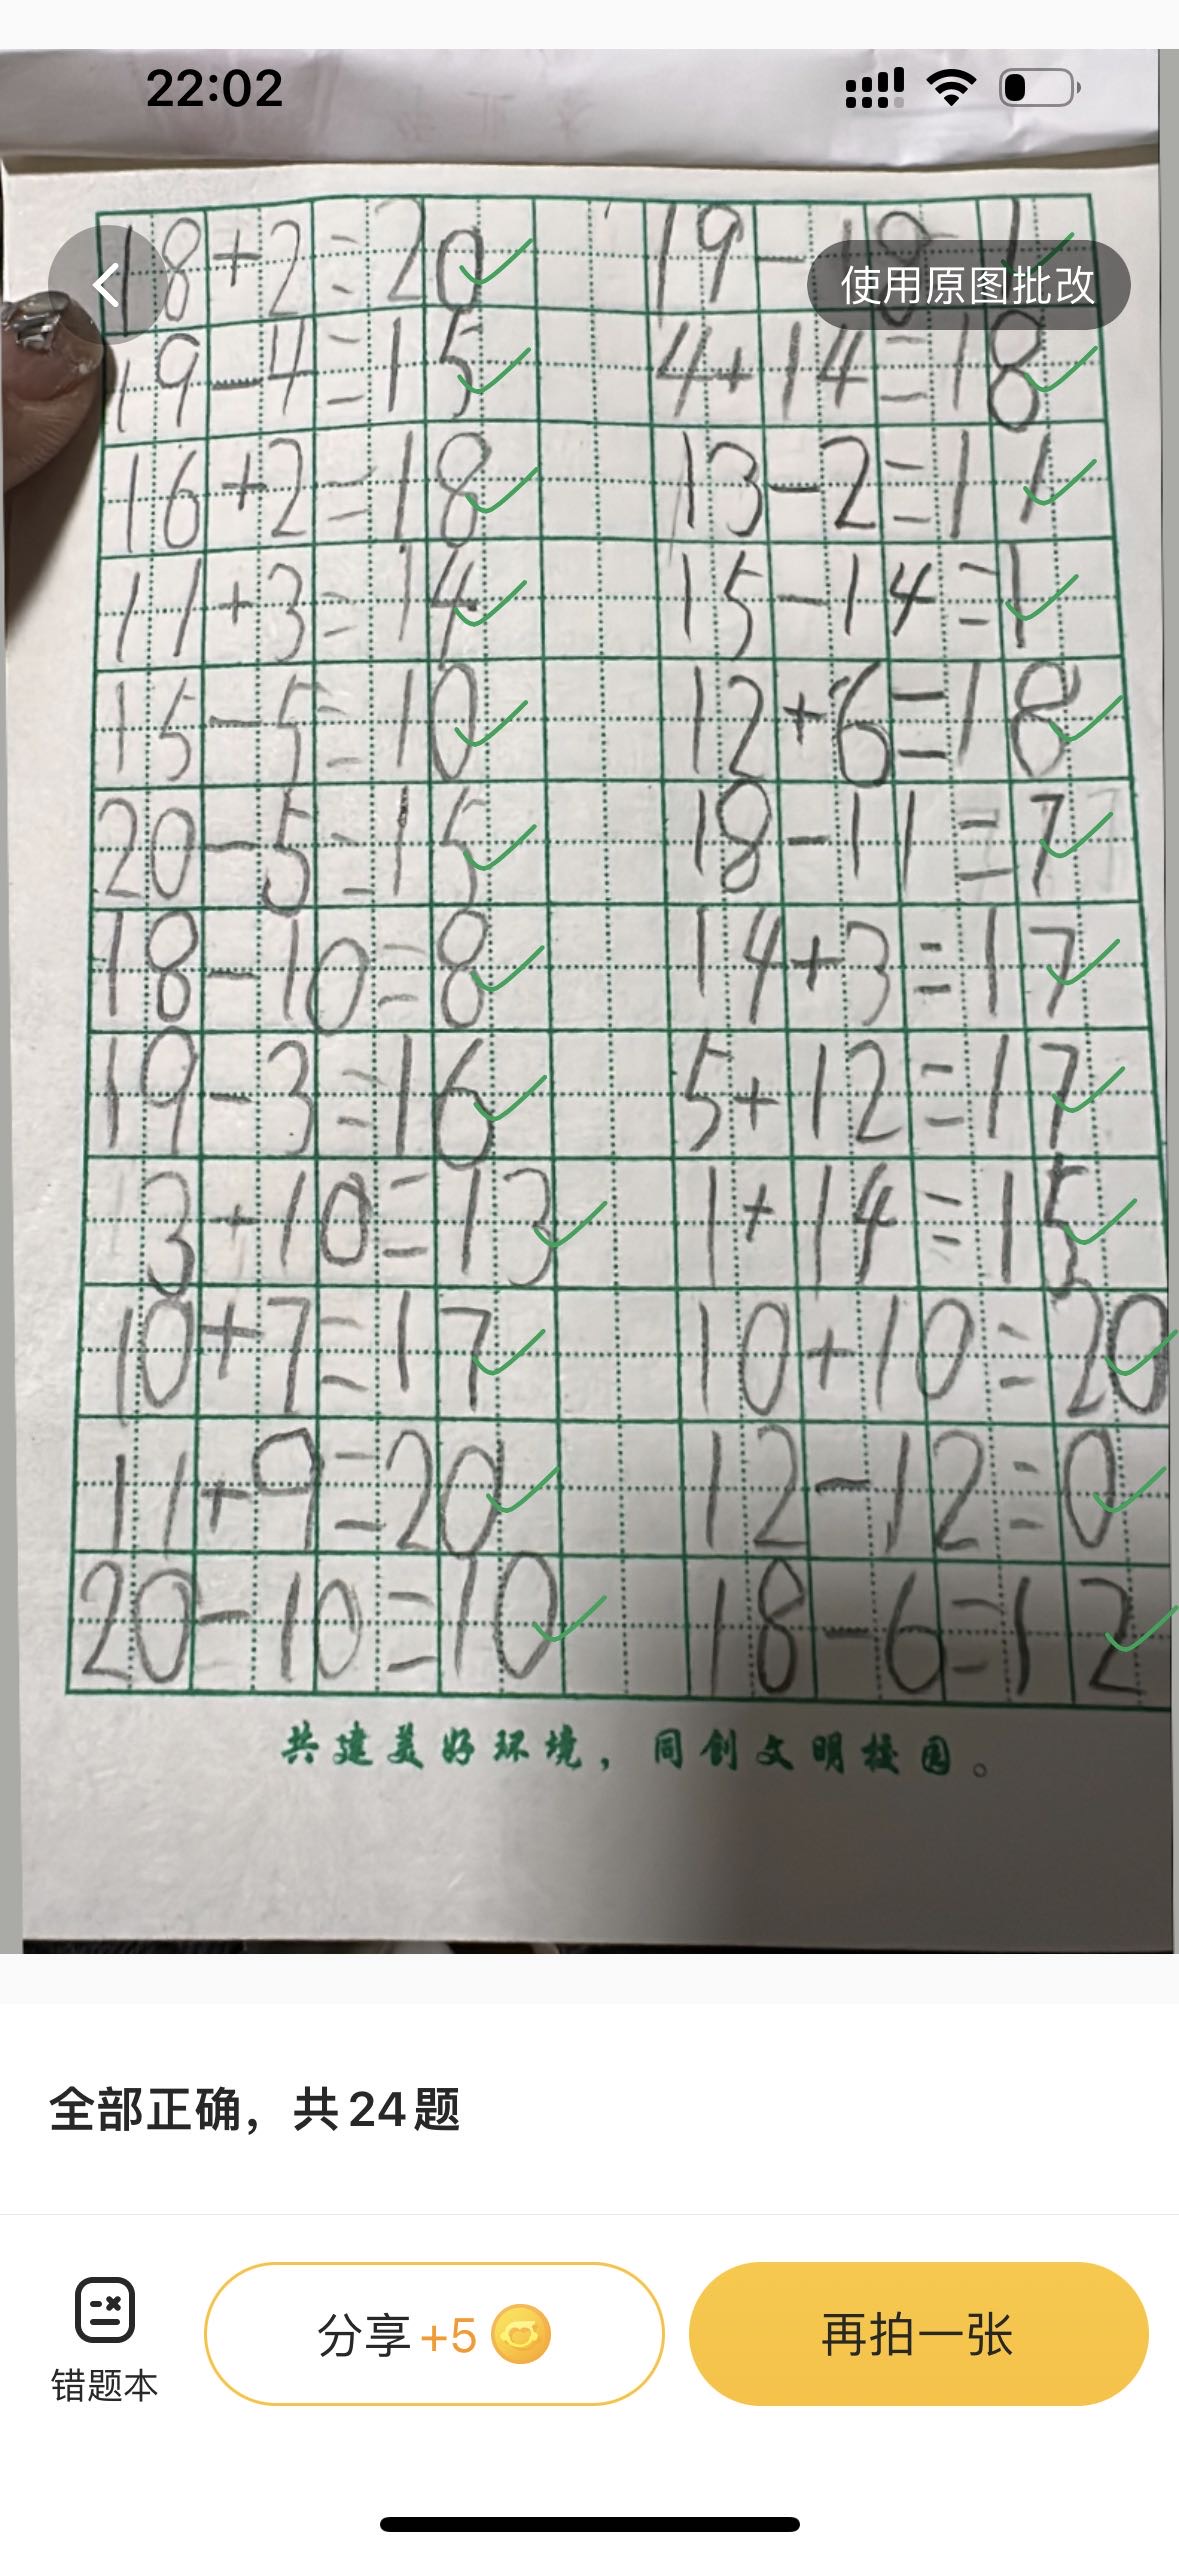 22:02
18+2=20 19-18=1
使用原图批改
19-4=15 4+14=18
16+2=18 13-2=11
11+3=14 15-14=1
15-5=10 12+6=18
20-5=15 18-11=7
18-10=8 14+3=17
19-3=16 5+12=17
3+10=13 1+14=15
10+7=17 10+10=20
11+9=20 12-12=0
20-10=10 18-6=12
共建美好环境，同创文明校园。
全部正确，共24题
错题本 分享+5 再拍一张